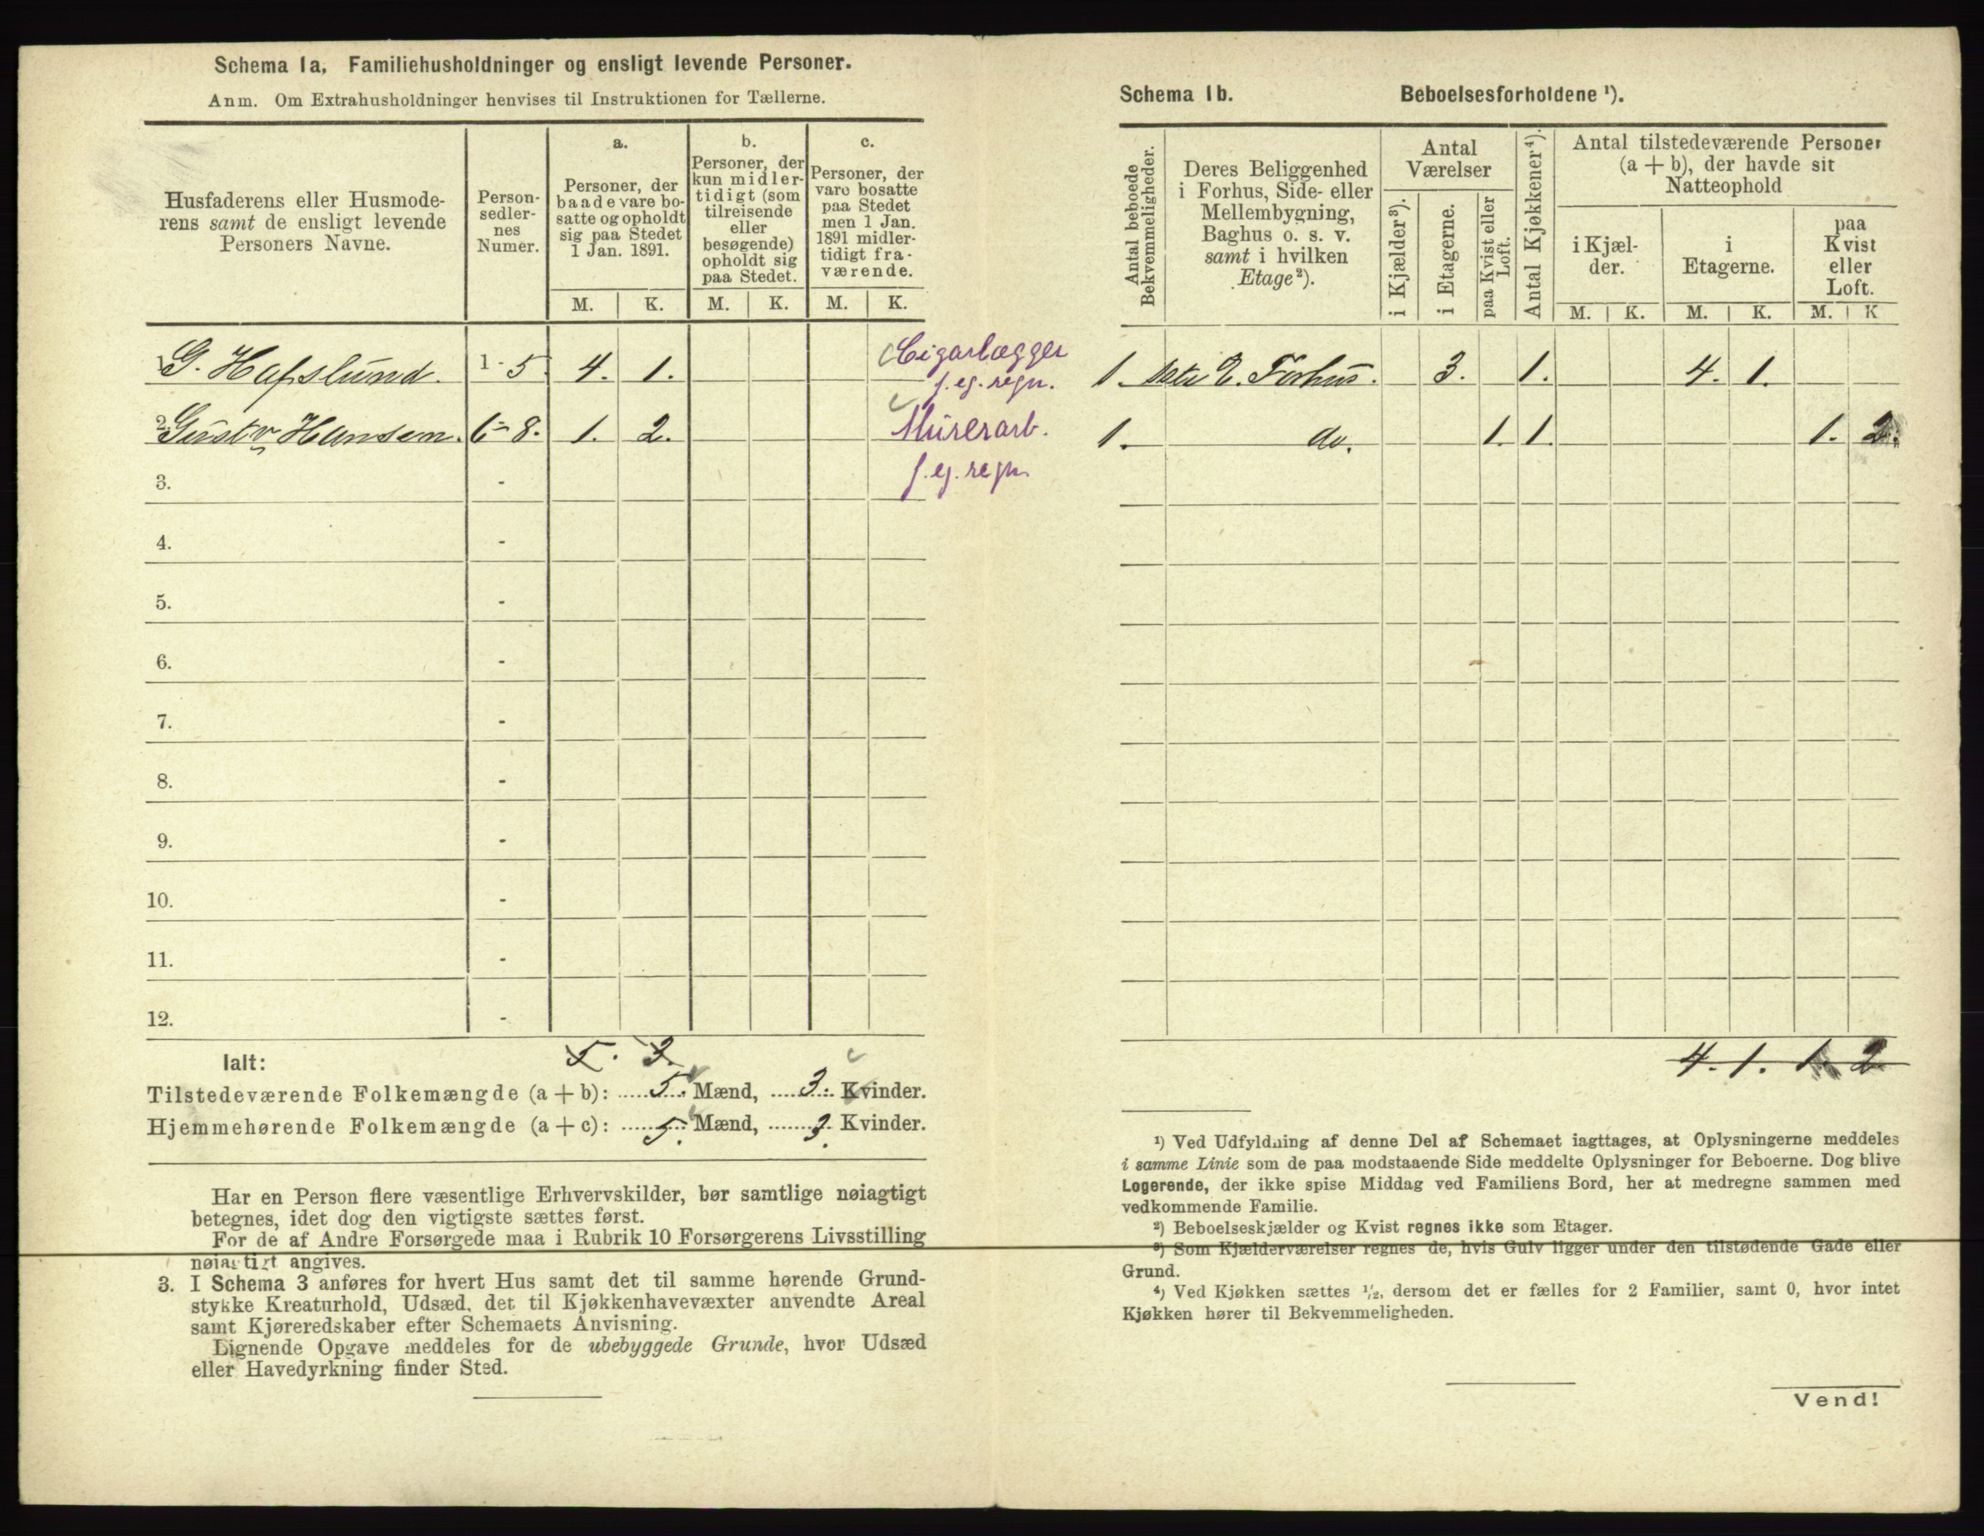 Schema 1a. Familiehusholdninger og ensligt levende Personer.
Anm. Om Extrahusholdninger henvises til Instruktionen for Tællerne.
Husfaderens eller Husmode-
rens samt de ensligt levende
Personers Navne.
Person-
sedler-
nes
Numer.
a.
Personer, der
baade vare bo-
satte og opholdt
sig paa Stedet
1 Jan. 1891.
b.
Personer, der
kun midler-
tidigt (som
tilreisende
eller
besøgende)
opholdt sig
paa Stedet.
c.
Personer, der
vare bosatte
paa Stedet
men 1 Jan.
1891 midler-
tidigt fra-
værende.
M. K. M. K. M. K.
G. Hafslund. 1 - 5 4. 1. Cigarlægger
f. eg. regn.
2 Gustav Hansen. 6 - 8. 1. 2. Murerarb.
f. eg. regn.
3. -
4. -
5. -
6. -
7. -
8. -
9. -
10. -
11. -
12. -
5. 3.
Ialt:
Tilstedeværende Folkemængde (a + b): 5. Mænd, 3. Kvinder.
Hjemmehørende Folkemængde (a + c): 5. Mænd, 3. Kvinder.
Har en Person flere væsentlige Erhvervskilder, bør samtlige nøiagtigt
betegnes, idet dog den vigtigste sættes først.
For de af Andre Forsørgede maa i Rubrik 10 Forsørgerens Livsstilling
nøiagtigt angives.
3. I Schema 3 anføres for hvert Hus samt det til samme hørende Grund-
stykke Kreaturhold, Udsæd, det til Kjøkkenhavevæxter anvendte Areal
samt Kjøreredskaber efter Schemaets Anvisning.
Lignende Opgave meddeles for de ubebyggede Grunde, hvor Udsæd
eller Havedyrkning finder Sted.
Schema 1b. Beboelsesforholdene ¹).
Antal beboede
Bekvemmeligheder.
Deres Beliggenhed
i Forhus, Side- eller
Mellembygning,
Baghus o. s. v.
samt i hvilken
Etage²).
Antal
Værelser
i Kjælder³).
i Etagerne.
paa Kvist eller
Loft.
Antal Kjøkkener⁴).
Antal tilstedeværende Personer
(a + b), der havde sit
Natteophold
i Kjæl-
der.
i
Etagerne.
paa
Kvist
eller
Loft.
M. K. M. K. M. K
1. 1ste E. Forhus. 3. 1. 4. 1.
1. do. 1. 1. 1. 2.
4. 1. 1. 2
¹) Ved Udfyldning af denne Del af Schemaet iagttages, at Oplysningerne meddeles
i samme Linie som de paa modstaaende Side meddelte Oplysninger for Beboerne. Dog blive
Logerende, der ikke spise Middag ved Familiens Bord, her at medregne sammen med
vedkommende Familie.
²) Beboelseskjælder og Kvist regnes ikke som Etager.
³) Som Kjælderværelser regnes de, hvis Gulv ligger under den tilstødende Gade eller
Grund.
⁴) Ved Kjøkken sættes ½, dersom det er fælles for 2 Familier, samt 0, hvor intet
Kjøkken hører til Bekvemmeligheden.
Vend!